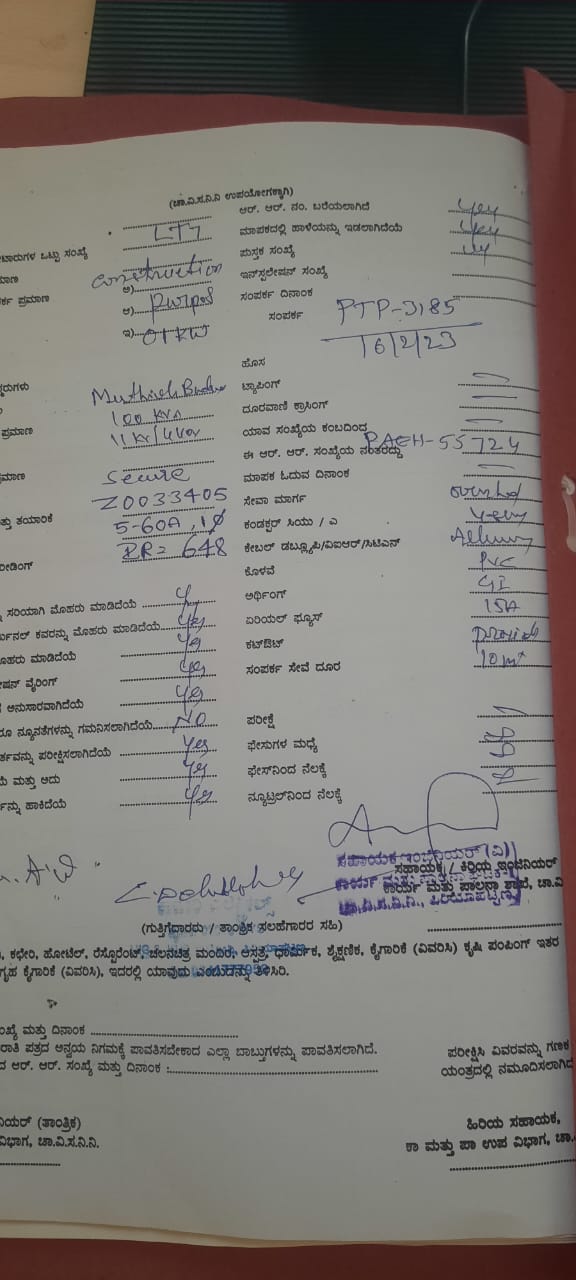 (ಚಾ.ವಿ.ಸ.ನಿ.ನಿ ಉಪಯೋಗಕ್ಕಾಗಿ)
ಆರ್. ಆರ್. ನಂ. ಬರೆಯಲಾಗಿದೆ Yes
ಟಾರುಗಳ ಒಟ್ಟು ಸಂಖ್ಯೆ LT7 ಮಾಪಕದಲ್ಲಿ ಹಾಳೆಯನ್ನು ಇಡಲಾಗಿದೆಯೆ Yes
ಮಾಣ ಪುಸ್ತಕ ಸಂಖ್ಯೆ
ರ್ಕ ಪ್ರಮಾಣ ಅ) construction ಇನ್‌ಸ್ಟಲೇಷನ್ ಸಂಖ್ಯೆ
ಆ) ಸಂಪರ್ಕ ದಿನಾಂಕ
ಇ) 01KW ಸಂಪರ್ಕ PTP-3185
16/2/23
ಹೊಸ
ರುಗಳು ಟ್ಯಾಪಿಂಗ್
100 KVA ದೂರವಾಣಿ ಕ್ರಾಸಿಂಗ್
ಪ್ರಮಾಣ ಯಾವ ಸಂಖ್ಯೆಯ ಕಂಬದಿಂದ
ಈ ಆರ್. ಆರ್. ಸಂಖ್ಯೆಯ ನಂತರದ್ದು PAEH-55724
ಮಾಣ Secure ಮಾಪಕ ಓದುವ ದಿನಾಂಕ
Z0033405 ಸೇವಾ ಮಾರ್ಗ
ತ್ತು ತಯಾರಿಕೆ 5-60A, 1Ø ಕಂಡಕ್ಟರ್ ಸಿಯು / ಎ
ೀಡಿಂಗ್ 648 ಕೇಬಲ್ ಡಬ್ಲ್ಯೂಪಿ/ವಿಐಆರ್/ಸಿಟಿಎಸ್
ಕೊಳವೆ PVC
ಸರಿಯಾಗಿ ಮೊಹರು ಮಾಡಿದೆಯೆ ಅರ್ಥಿಂಗ್ GI
ರ್ಮಿನಲ್ ಕವರನ್ನು ಮೊಹರು ಮಾಡಿದೆಯೆ Yes ಏರಿಯಲ್ ಫ್ಯೂಸ್ 15A
ಮೊಹರು ಮಾಡಿದೆಯೆ Yes ಕಟ್‌ಔಟ್
ೇಷನ್ ವೈರಿಂಗ್ Yes ಸಂಪರ್ಕ ಸೇವೆ ದೂರ
ಅನುಸಾರವಾಗಿದೆಯೆ Yes
ೂ ನ್ಯೂನತೆಗಳನ್ನು ಗಮನಿಸಲಾಗಿದೆಯೆ NO ಪರೀಕ್ಷೆ
ರ್ತವನ್ನು ಪರೀಕ್ಷಿಸಲಾಗಿದೆಯೆ Yes ಫೇಸುಗಳ ಮಧ್ಯೆ
ಯೆ ಮತ್ತು ಅದು Yes ಫೇಸ್‌ನಿಂದ ನೆಲಕ್ಕೆ
ನ್ನು ಹಾಕಿದೆಯೆ Yes ನ್ಯೂಟ್ರಲ್‌ನಿಂದ ನೆಲಕ್ಕೆ
ಸಹಾಯಕ ಇಂಜಿನಿಯರ್ (ವಿ)
ಸಹಾಯಕ / ಕಿರಿಯ ಇಂಜಿನಿಯರ್
ಕಾರ್ಯ ಮತ್ತು ಪಾಲನಾ ಶಾಖೆ, ಚಾ.ವಿ
ಚಾ.ವಿ.ಸ.ನಿ.ನಿ., ಪಿರಿಯಾಪಟ್ಟಣ
(ಗುತ್ತಿಗೆದಾರರು / ತಾಂತ್ರಿಕ ಸಲಹೆಗಾರರ ಸಹಿ)
, ಕಛೇರಿ, ಹೋಟೆಲ್, ರೆಸ್ಟೋರೆಂಟ್, ಚಲನಚಿತ್ರ ಮಂದಿರ, ಆಸ್ಪತ್ರೆ, ಧಾರ್ಮಿಕ, ಶೈಕ್ಷಣಿಕ, ಕೈಗಾರಿಕೆ (ವಿವರಿಸಿ) ಕೃಷಿ ಪಂಪಿಂಗ್ ಇತರ
ಗೃಹ ಕೈಗಾರಿಕೆ (ವಿವರಿಸಿ), ಇದರಲ್ಲಿ ಯಾವುದು ಎಂಬುದನ್ನು ತಿಳಿಸಿರಿ.
ಂಖ್ಯೆ ಮತ್ತು ದಿನಾಂಕ
ರಾತಿ ಪತ್ರದ ಅನ್ವಯ ನಿಗಮಕ್ಕೆ ಪಾವತಿಸಬೇಕಾದ ಎಲ್ಲಾ ಬಾಬ್ತುಗಳನ್ನು ಪಾವತಿಸಲಾಗಿದೆ. ಪರೀಕ್ಷಿಸಿ ವಿವರವನ್ನು ಗಣಕ
ದ ಆರ್. ಆರ್. ಸಂಖ್ಯೆ ಮತ್ತು ದಿನಾಂಕ : ಯಂತ್ರದಲ್ಲಿ ನಮೂದಿಸಲಾಗಿದೆ
ನಿಯರ್ (ತಾಂತ್ರಿಕ) ಹಿರಿಯ ಸಹಾಯಕ,
ವಿಭಾಗ, ಚಾ.ವಿ.ಸ.ನಿ.ನಿ. ಕಾ ಮತ್ತು ಪಾ ಉಪ ವಿಭಾಗ, ಚಾ.